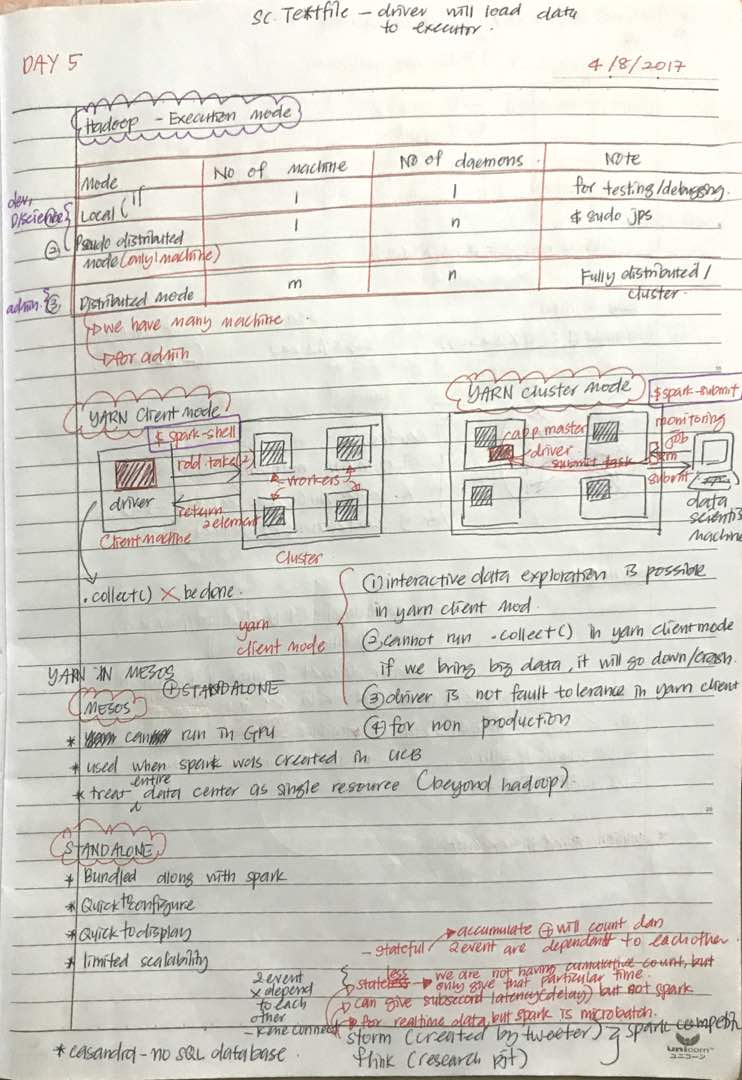 sc. Textfile – driver will load data
to executor.
DAY 5
4/8/2017
Hadoop – Execution mode
Mode No of machine No of daemons. Note
dev,
D/science ① Local 1 1 for testing/debugging.
② Psudo distributed 1 n $ sudo jps
mode (only 1 machine)
admin. ③ Distributed mode m n Fully distributed /
cluster.
we have many machine
for admin
YARN Client mode
YARN Cluster mode
$ spark-submit
$ spark-shell
rdd.take(2)
driver
return
2 element
Client machine
workers
Cluster
app master
driver
submit task
monitoring
job
submit
data
scientist
machine
.collect() X be done.
yarn
client mode
① interactive data exploration is possible
in yarn client mod.
② cannot run .collect() in yarn client mode
if we bring big data, it will go down/crash.
③ driver is not fault tolerance in yarn client
④ for non production
YARN IN MESOS
+ STANDALONE
MESOS
* can run in GPU
* used when spark was created in UCB
* treat entire data center as single resource (beyond hadoop).
STANDALONE
* Bundled along with spark
* Quick to configure
* Quick to display
* limited scalability
– stateful accumulate + will count dan
2 event are dependant to each other.
2 event
X depend
to each
other
stateless we are not having cumulative count, but
only give that particular time.
can give subsecond latency (delay) but not spark
for realtime data, but spark is microbatch.
storm (created by tweeter)
flink (research pjt)
* casandra – no SQL database.
unicorn
ユニコーン